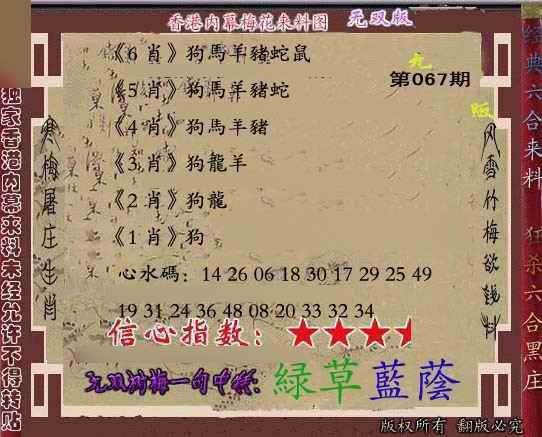 香港内幕梅花来料图 无双版
《6 肖》狗馬羊豬蛇鼠
第067期
《5 肖》狗馬羊豬蛇
《4 肖》狗馬羊豬
《3 肖》狗龍羊
《2 肖》狗龍
《1 肖》狗
心水碼：14 26 06 18 30 17 29 25 49
19 31 24 36 48 08 20 33 32 34
信心指数：
綠草藍蔭
独家香港内幕来料未经允许不得转贴
寒梅屠庄生肖
风雪竹梅欲钱料
经典六合来料
狂杀六合黑庄
版权所有 翻版必究